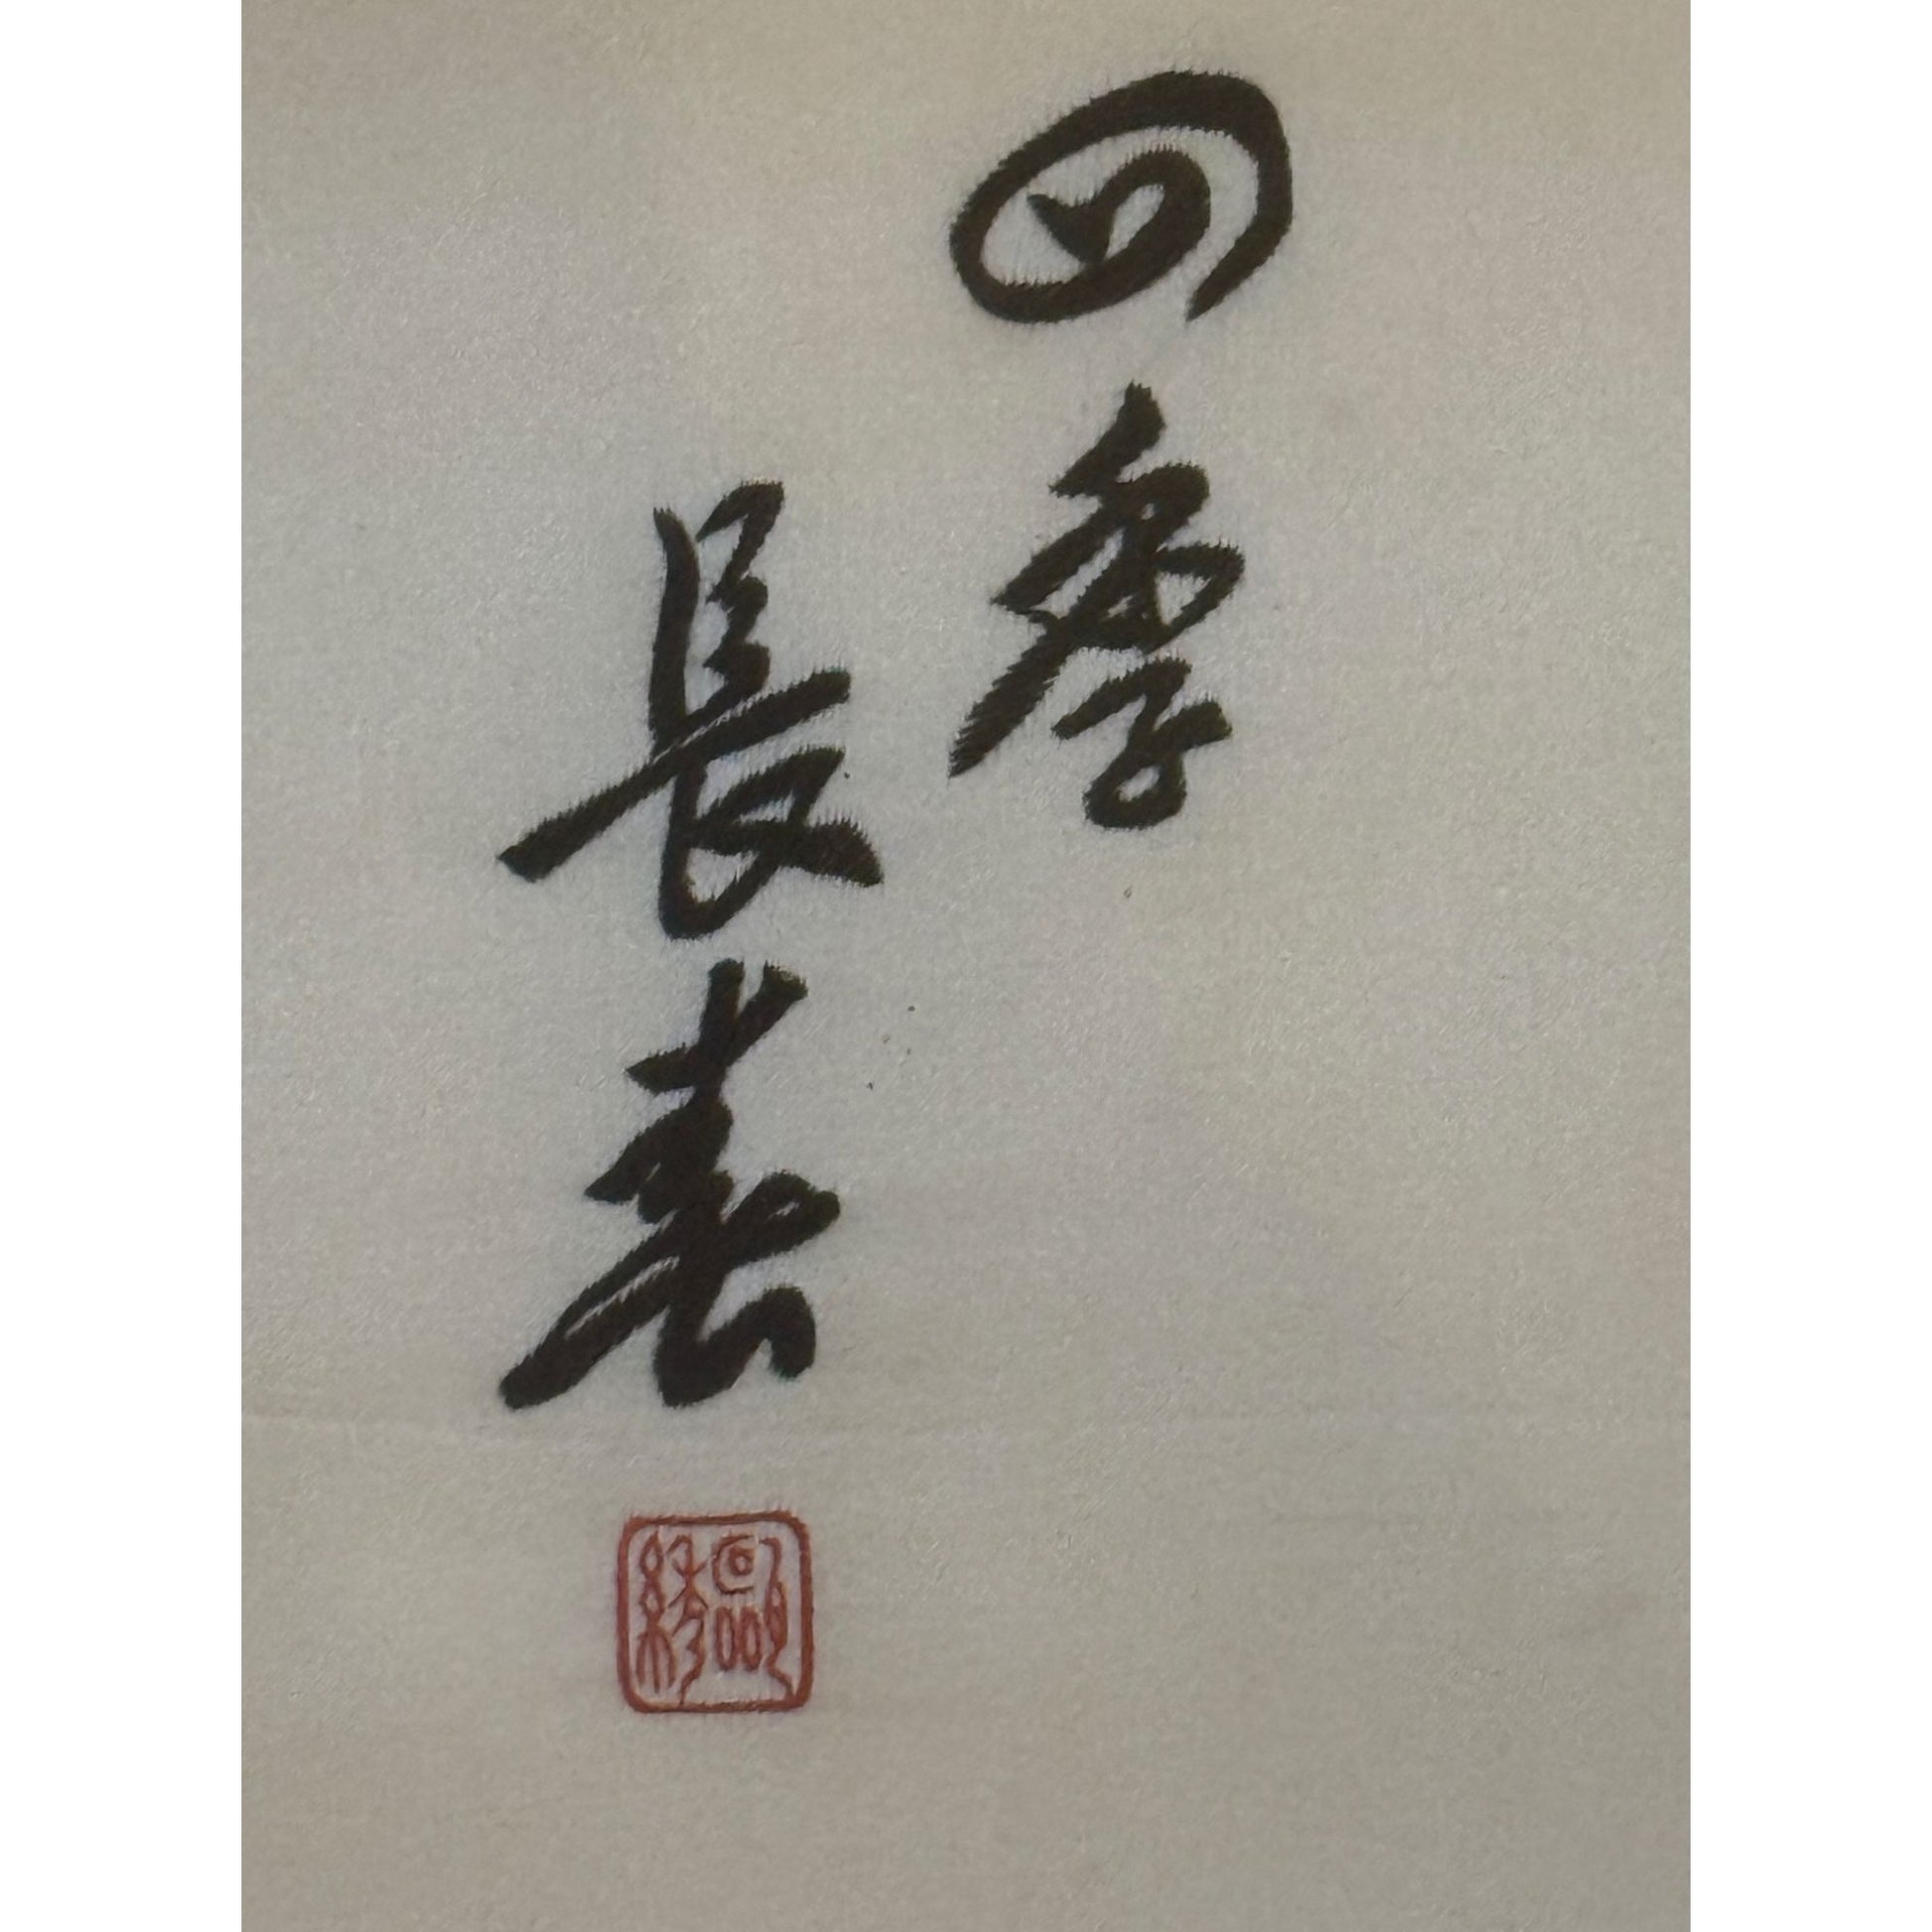 四季
長春